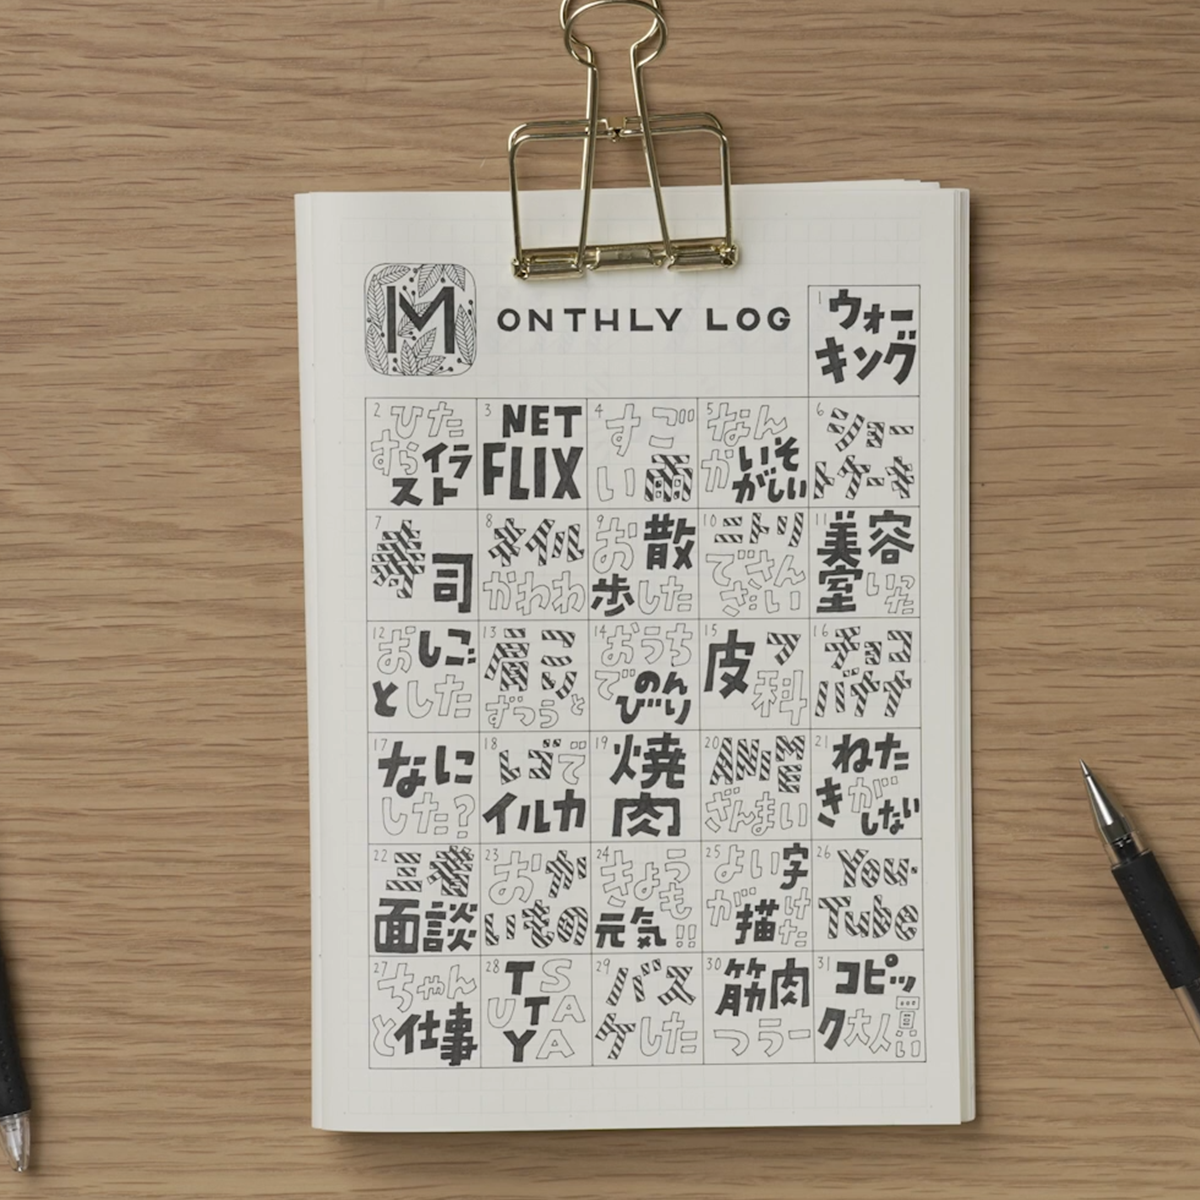 MONTHLY LOG
1 ウォー
キング
2 ひた
すらイラ
スト
3 NET
FLIX
4 すご
い雨
5 なん
かいそ
がしい
6 ショー
トケーキ
7 寿
司
8 ネイル
かわわ
9 お散
歩した
10 ニトリ
でさん
ざい
11 美容
室いっ
た
12 おしご
とした
13 肩こり
ずっうと
14 おうち
でのん
びり
15 皮フ
科
16 チョコ
バナナ
17 なに
した?
18 レゴで
イルカ
19 焼
肉
20 ANIME
ざんまい
21 ねた
きが
しない
22 三者
面談
23 おか
いもの
24 きょうも
元気!!
25 よい字
が描けた
26 You-
Tube
27 ちゃん
と仕事
28 TS
UTA
YA
29 バス
ケした
30 筋肉
つうー
31 コピッ
ク大人買い